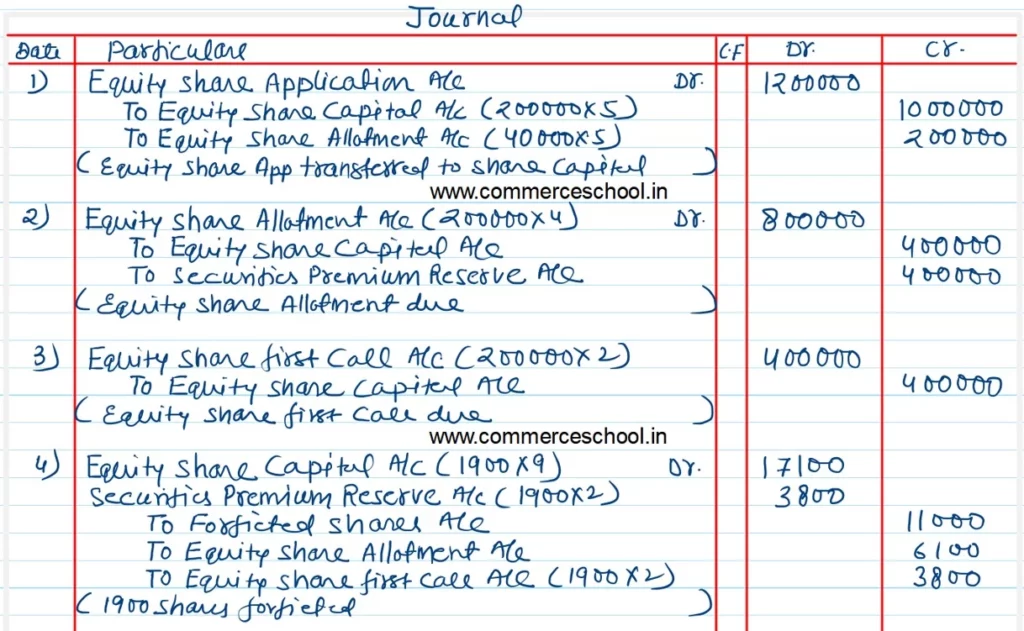 Journal
Date Particulare C.F Dr. Cr.
1) Equity share Application A/c Dr. 1200000
To Equity share Capital A/c (200000×5) 1000000
To Equity share Allotment A/c (40000×5) 200000
( Equity share App transferred to share Capital )
www.commerceschool.in
2) Equity share Allotment A/c (200000×4) Dr. 800000
To Equity share Capital A/c 400000
To Securities Premium Reserve A/c 400000
( Equity share Allotment due )
3) Equity share first Call A/c (200000×2) 400000
To Equity share Capital A/c 400000
( Equity share first Call due )
www.commerceschool.in
4) Equity share Capital A/c (1900×9) Dr. 17100
Securities Premium Reserve A/c (1900×2) 3800
To Forficted shares A/c 11000
To Equity share Allotment A/c 6100
To Equity share first call A/c (1900×2) 3800
( 1900 shares forficted )